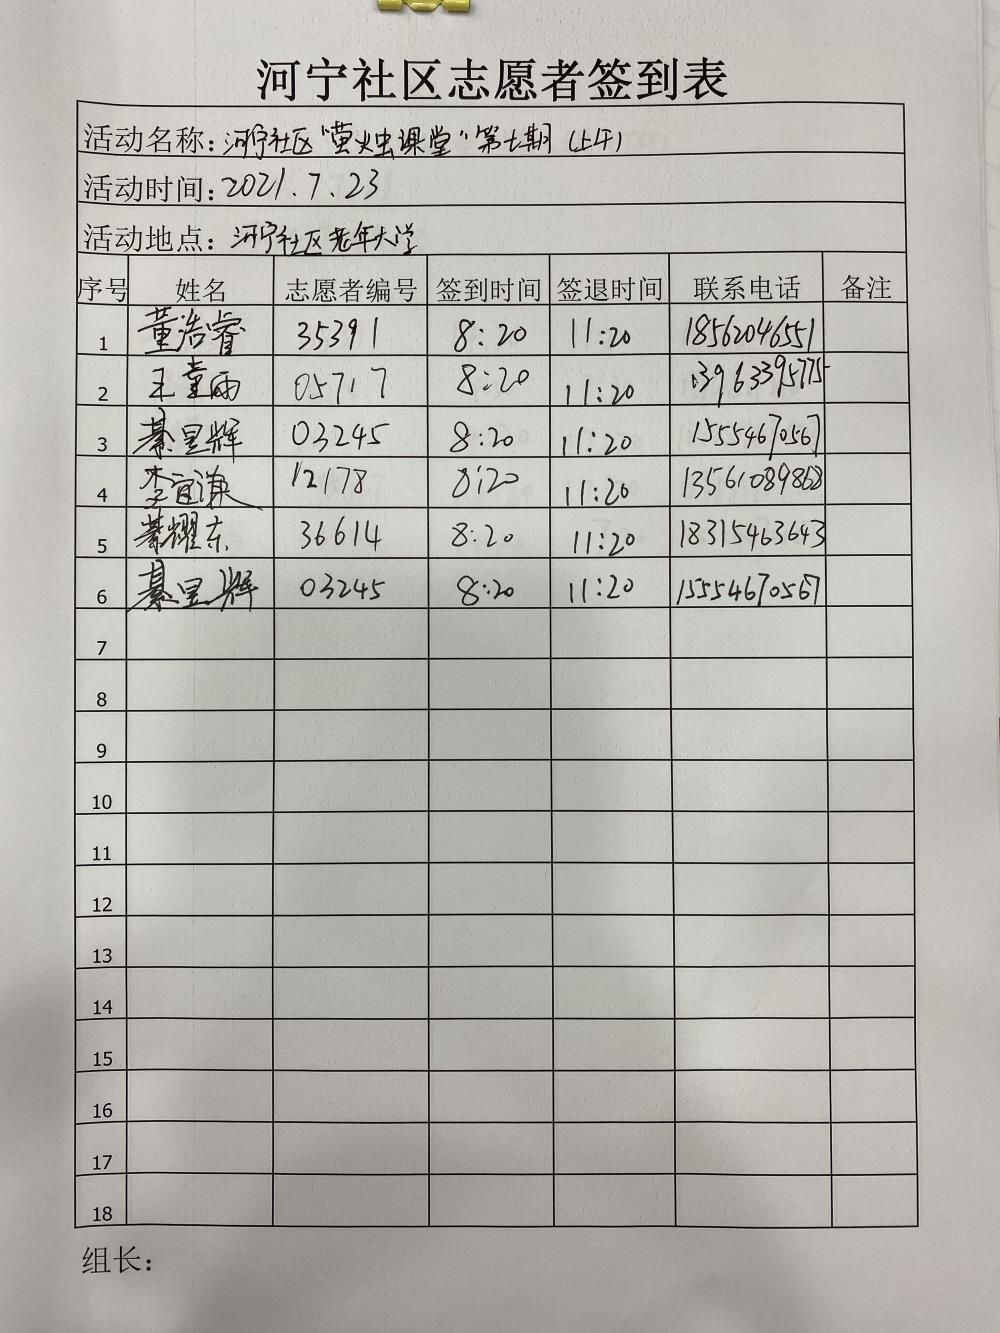 河宁社区志愿者签到表
活动名称：河宁社区“萤火虫课堂”第七期（上午）
活动时间：2021.7.23
活动地点：河宁社区老年大学
序号 姓名 志愿者编号 签到时间 签退时间 联系电话 备注
1 董浩睿 35391 8:20 11:20 18562046551
2 王童雨 05717 8:20 11:20 13963395775
3 綦星辉 03245 8:20 11:20 15554670567
4 李宜谦 12178 8:20 11:20 13561089868
5 綦耀东 36614 8:20 11:20 18315463643
6 綦星辉 03245 8:20 11:20 15554670567
7
8
9
10
11
12
13
14
15
16
17
18
组长：